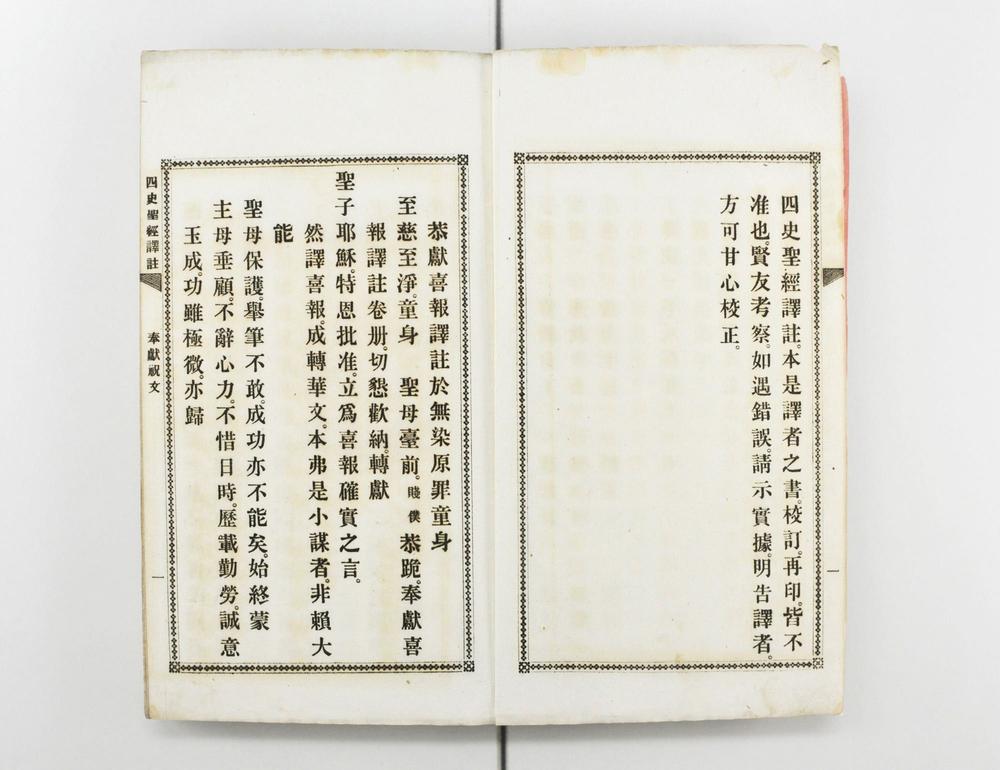 四史聖經譯註。本是譯者之書。校訂。再印。皆不
准也。賢友考察。如遇錯誤。請示實據。明告譯者。
方可甘心校正。
一
恭獻喜報譯註於無染原罪童身
至慈至淨。童身　聖母臺前。賤僕恭跪。奉獻喜
報譯註卷册。切懇歡納。轉獻
聖子耶穌。特恩批准。立爲喜報確實之言。
然譯喜報。成轉華文。本弗是小謀者。非賴大
能
聖母保護。舉筆不敢。成功亦不能矣。始終蒙
主母垂顧。不辭心力。不惜日時。歷載勤勞。誠意
玉成。功雖極微。亦歸
四史聖經譯註
奉獻祝文
一